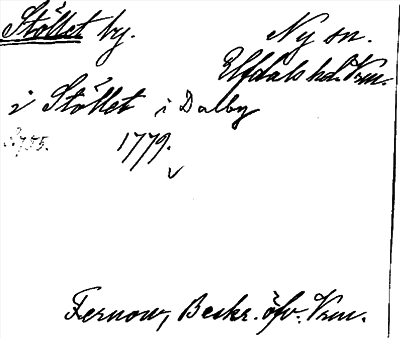 Stöllet by.
Ny sn.
Elfdals hd. Vrm.
i Stöllet i Dalby
1779.
Fernow, Beskr. öfv. Vrm.